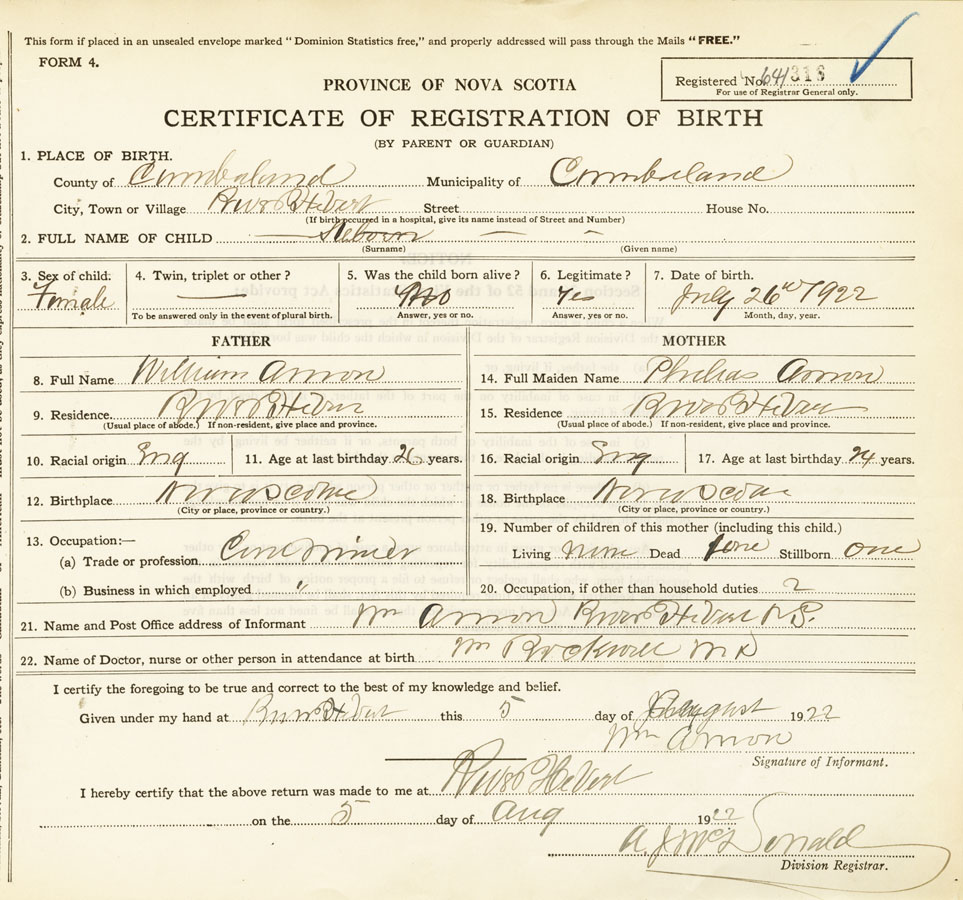 This form if placed in an unsealed envelope marked "Dominion Statistics free," and properly addressed will pass through the Mails "FREE."
FORM 4.
Registered No. 641318
For use of Registrar General only.
PROVINCE OF NOVA SCOTIA
CERTIFICATE OF REGISTRATION OF BIRTH
(BY PARENT OR GUARDIAN)
1. PLACE OF BIRTH.
County of Cumberland Municipality of Cumberland
City, Town or Village River Hebert Street House No.
(If birth occurred in a hospital, give its name instead of Street and Number)
2. FULL NAME OF CHILD Stilborn
(Surname) (Given name)
3. Sex of child: 4. Twin, triplet or other? 5. Was the child born alive? 6. Legitimate? 7. Date of birth.
Female — No Yes July 26th 1922
To be answered only in the event of plural birth. Answer, yes or no. Answer, yes or no. Month, day, year.
FATHER MOTHER
8. Full Name William Arnon 14. Full Maiden Name Arnon
9. Residence. River Hebert 15. Residence River Hebert
(Usual place of abode.) If non-resident, give place and province. (Usual place of abode.) If non-resident, give place and province.
10. Racial origin Eng 11. Age at last birthday 26 years. 16. Racial origin Eng 17. Age at last birthday 24 years.
12. Birthplace Nova Scotia 18. Birthplace Nova Scotia
(City or place, province or country.) (City or place, province or country.)
19. Number of children of this mother (including this child.)
13. Occupation:—
(a) Trade or profession Coal miner Living None Dead one Stillborn one
(b) Business in which employed " 20. Occupation, if other than household duties
21. Name and Post Office address of Informant Wm Arnon River Hebert N.S.
22. Name of Doctor, nurse or other person in attendance at birth Wm Rockwell M D
I certify the foregoing to be true and correct to the best of my knowledge and belief.
Given under my hand at River Hebert this 5 day of August 1922
Wm Arnon
Signature of Informant.
I hereby certify that the above return was made to me at River Hebert
on the 5 day of Aug 1922
A. J McDonald
Division Registrar.